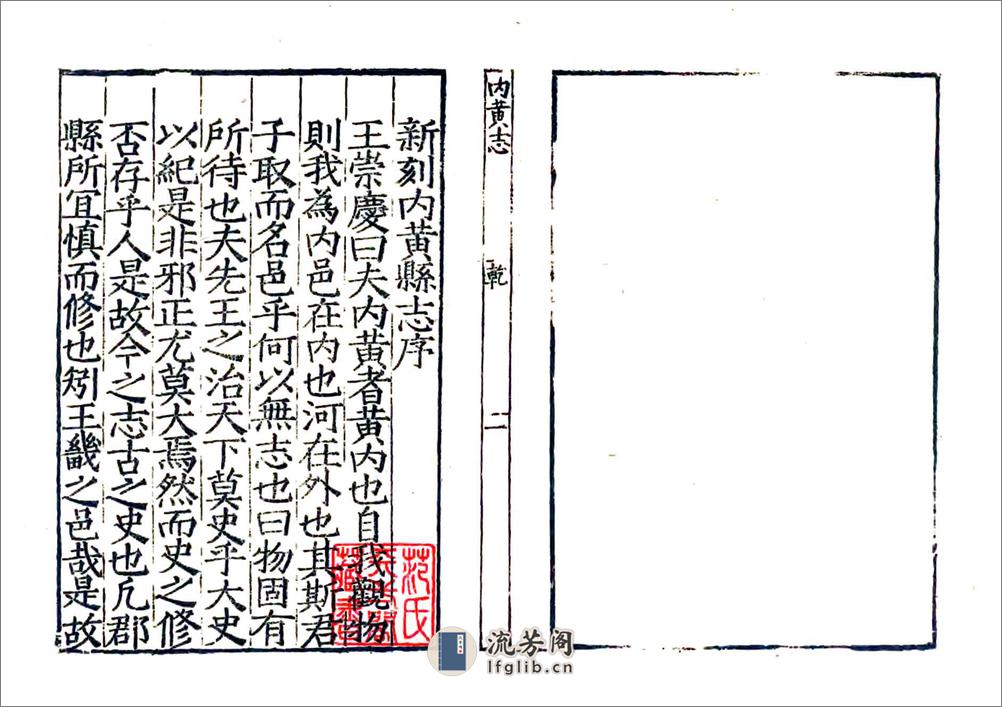 新刻内黄縣志序
王崇慶曰夫内黄者黄内也自我觀物
則我為内邑在内也河在外也其斯君
子取而名邑乎何以無志也曰物固有
所待也夫先王之治天下莫史乎大史
以紀是非邪正尤莫大焉然而史之修
否存乎人是故今之志古之史也凡郡
縣所宜慎而修也矧王畿之邑哉是故
内黄志
乾
二
范氏
流芳阁
lfglib.cn